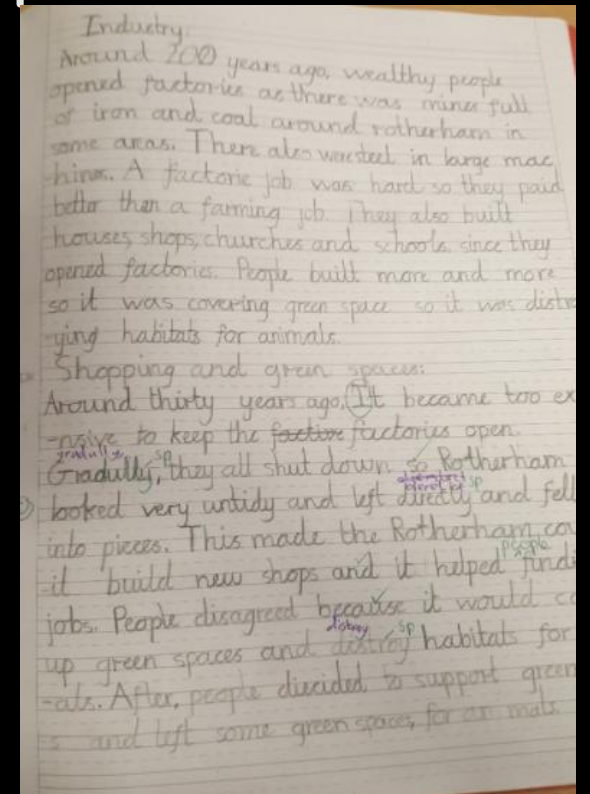 Industry:
Around 200 years ago, wealthy people
opened factories as there was mines full
of iron and coal around rotherham in
some areas. There also was steel in large mac
-hines. A factorie job was hard so they paid
better than a farming job. They also built
houses, shops, churches and schools since they
opened factories. People built more and more
so it was covering green space so it was distro
-ying habitats for animals.
Shopping and green spaces:
Around thirty years ago, It became too ex
-nsive to keep the factorie factories open.
gradually sp
Gradually, they all shut down so Rotherham
sp
looked very untidy and left and fell
into pieces. This made the Rotherham cou
people
-il build new shops and it helped findi
jobs. People disagreed because it would co
distroy sp
up green spaces and destroy habitats for
-als. After, people diecided to support green
-s and left some green spaces, for an mals.